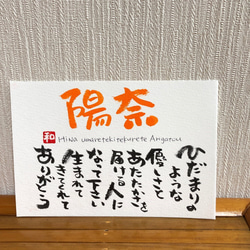 陽奈
和
Hina umaretekitekurete Arigatou
ひだまりの
ような
優しさと
あたたかさを
届ける人に
なって下さい
生まれて
きてくれて
ありがとう